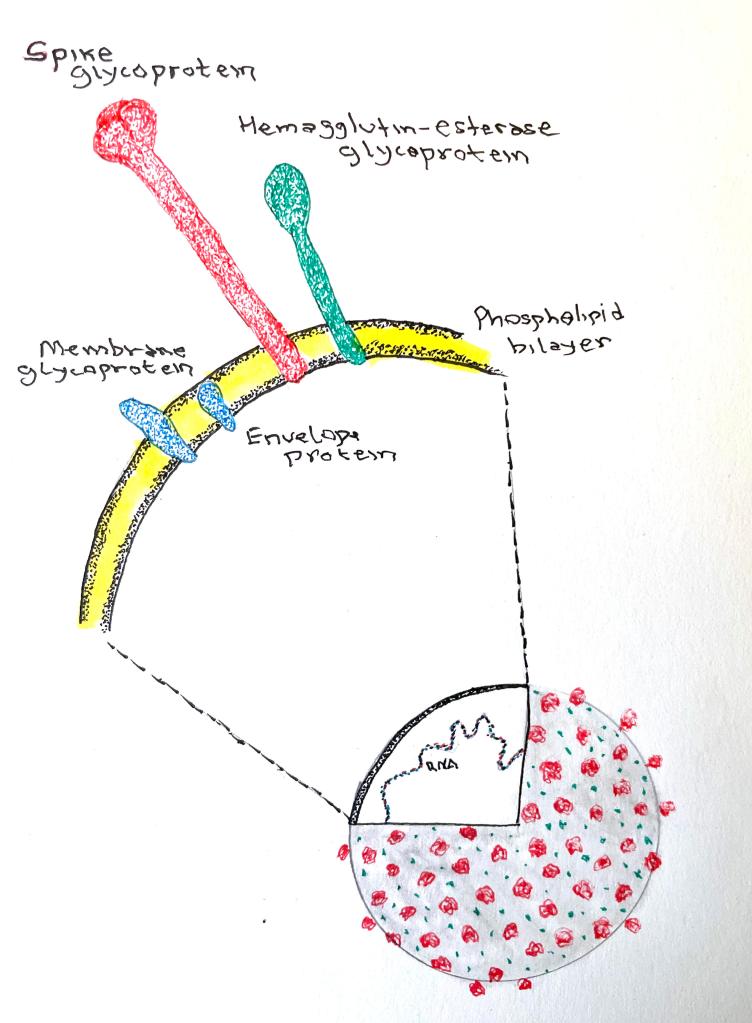 Spike
glycoprotein
Hemagglutin-esterase
glycoprotein
Phospholipid
bilayer
Membrane
glycoprotein
Envelope
protein
RNA